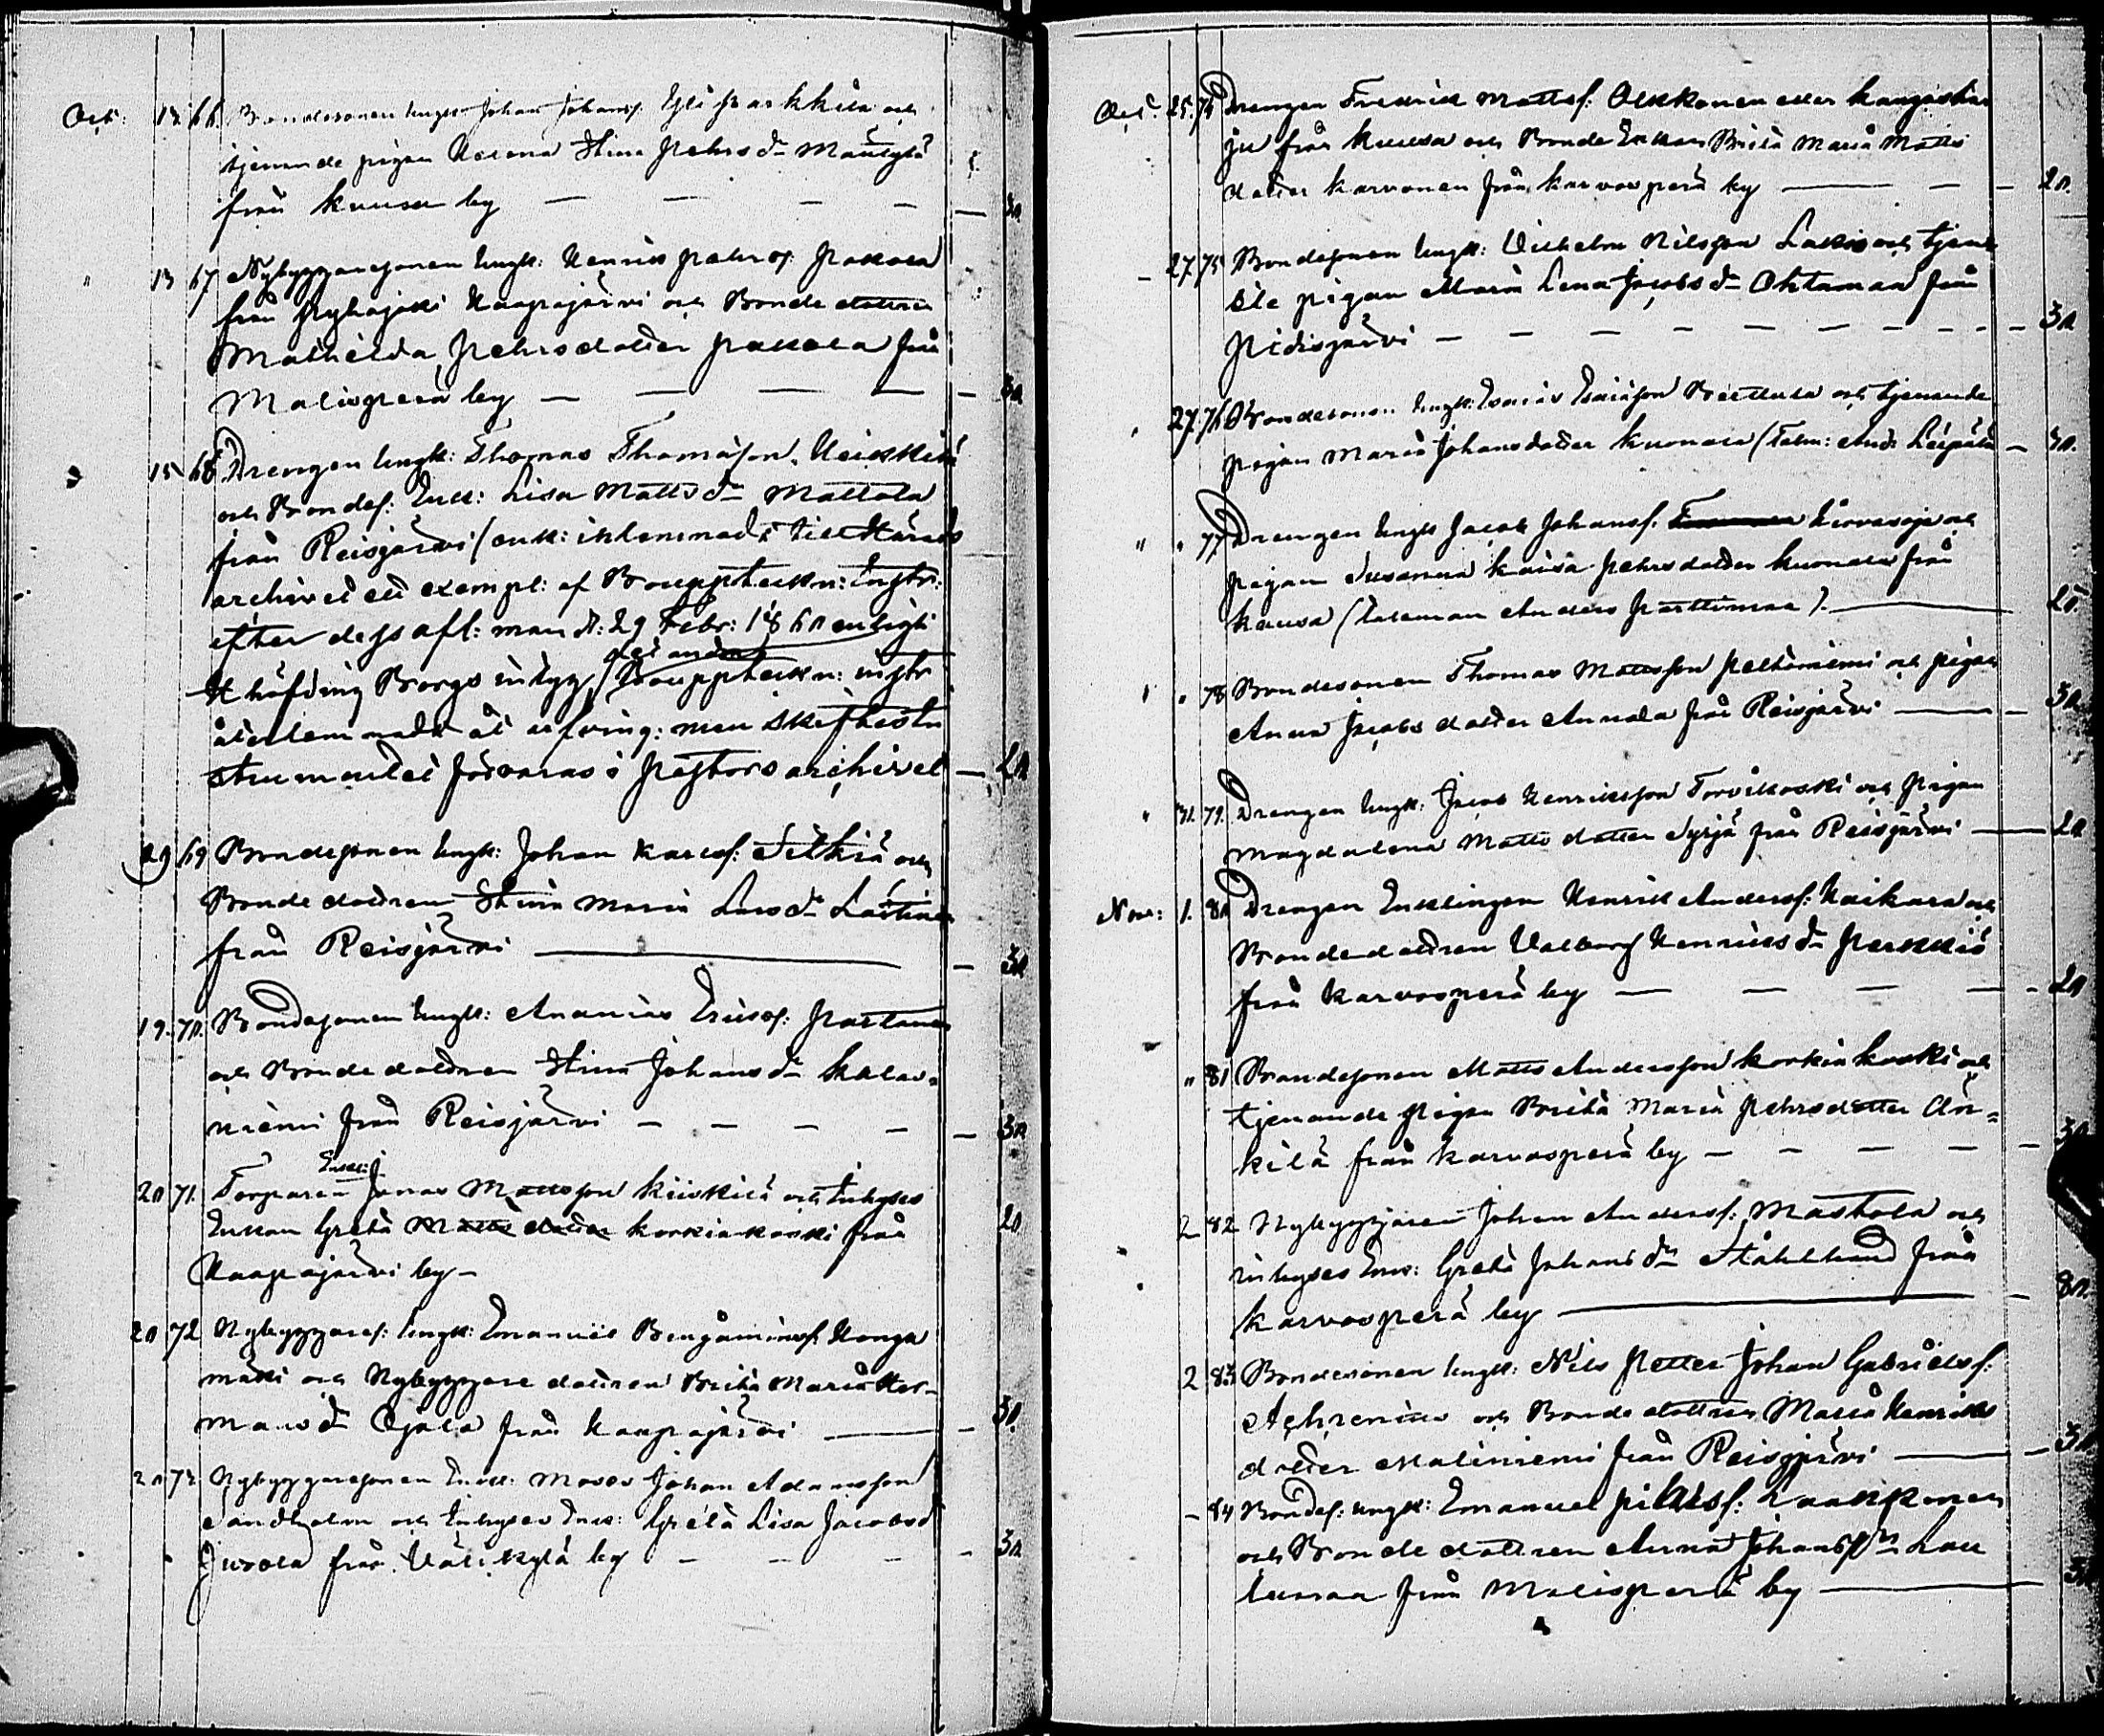 Oct: 13. 66. Bondesonen Ungk. Johan Johansf. Yliparkkila och
tjenande pigan Helena Stina Pehrs dr Mäntylä
från Kuusa by — — — — 30.
" 13 67 Nybyggaresonen Ungk: Henrik Pehrsf. Pakola
från Pyhäjoki Haapajärvi och Bonde dottren
Mathilda Pehrsdotter Pakola från
Malisperä by — — — — 30.
15 68 Drengen Ungk: Thomas Thomasson
och Bondef. Enk: Lisa Matts dr Mattola
från Reisjärvi (enk: inlemnadt till Härads
archivet ett exempl: af Bouppteckn: Instr:
efter dess afl: man d: 29 Febr: 1860 enligt
Hhöfding Borgs intyg, det andra Bouppteckn: instr
återlemnadt åt arfving: men Skiftesin
strumentet förvaras i Pastors archivet — 20.
19 69 Bondesonen Ungk: Johan Karlsf. och
Bonde dottren Stina Maria Lars dr
från Reisjärvi — 30
19. 70. Bondesonen Ungk: Ananias Ericsf. Partanen
och Bonde dottren Stina Johans dr Kalas-
niemi från Reisjärvi — — — — 30
20 71. Torparen Enkl: Jonas Mattsson Kiiskilä och Inhyses
Enkan Greta Matts dotter Korkiakoski från 20
Haapajärvi by —
20 72 Nybyggaref: Ungk: Emanuel Benjaminsf. Honga
mäki och Nybyggare dottren Brita Maria Her-
mans dr Ojala från Haapajärvi — 30.
20 73 Nybyggaresonen Enkl: Moses Johan Adamsson
Sandholm och Inhyses Enk: Greta Lisa Jacobsd
Jusola från Välikylä by — — — 30.
Oct. 25. 74 Drengen Fredrik Mattsf. Olkkonen eller Kangashar
ju från Kuusa och Bonde Enkan Brita Maria Matts
dotter Karvonen från Karvosperä by — — — 20.
— 27. 75 Bondesonen Ungk: Wilhelm Nilsson och tjenst
pigan Maria Lena Jacobs dr Ohtamaa från
Pidisjärvi — — — — — 30
27. 76 Bondesonen Ungk: Esaias Esaiason och tjenande
pigan Maria Johansdotter Kuonala (Talm: And: Leipälä — 30.
" " 77 Drengen Ungk Jacob Johansf. och
pigan Susanna Kaisa Pehrsdotter Kuonala från
Kuusa (taleman Anders Parttimaa). — 20.
" " 78 Bondesonen Thomas Mattsson Peltoniemi och pigan
Anna Jacobs dotter Annala från Reisjärvi — — 30
" 31. 79. Drengen Ungk: Jacob Henriksson Torvikoski och Pigan
Magdalena Matts dotter Syrjä från Reisjärvi — 20.
Nov: 1. 80 Drengen Enklingen Henrik Andersf: Haikara och
Bondedottren Valborg Henriks dr Parkkis
från Karvosperä by — — — — 20
" 81 Bondesonen Matts Andersson Korkiakoski och
tjenande pigan Brita Maria Pehrsdotter
kilä från Karvosperä by — — — — 30
2 82 Nybyggaren Johan Andersf: Mastola och
inhyses Enk: Greta Johans dr Ståhlhand från
Karvosperä by — 80.
2 83 Bondesonen Ungk: Nils Petter Johan Gabrielsf.
Achrenius och Bonde dottren Maria Henriks
dotter Maliniemi från Reisjärvi — 30
— 84 Bondef: Ungk: Emanuel Nilsf. Laakkonen
och Bonde dottren Anna Johans dr Lau
lumaa från Malisperä by — 30